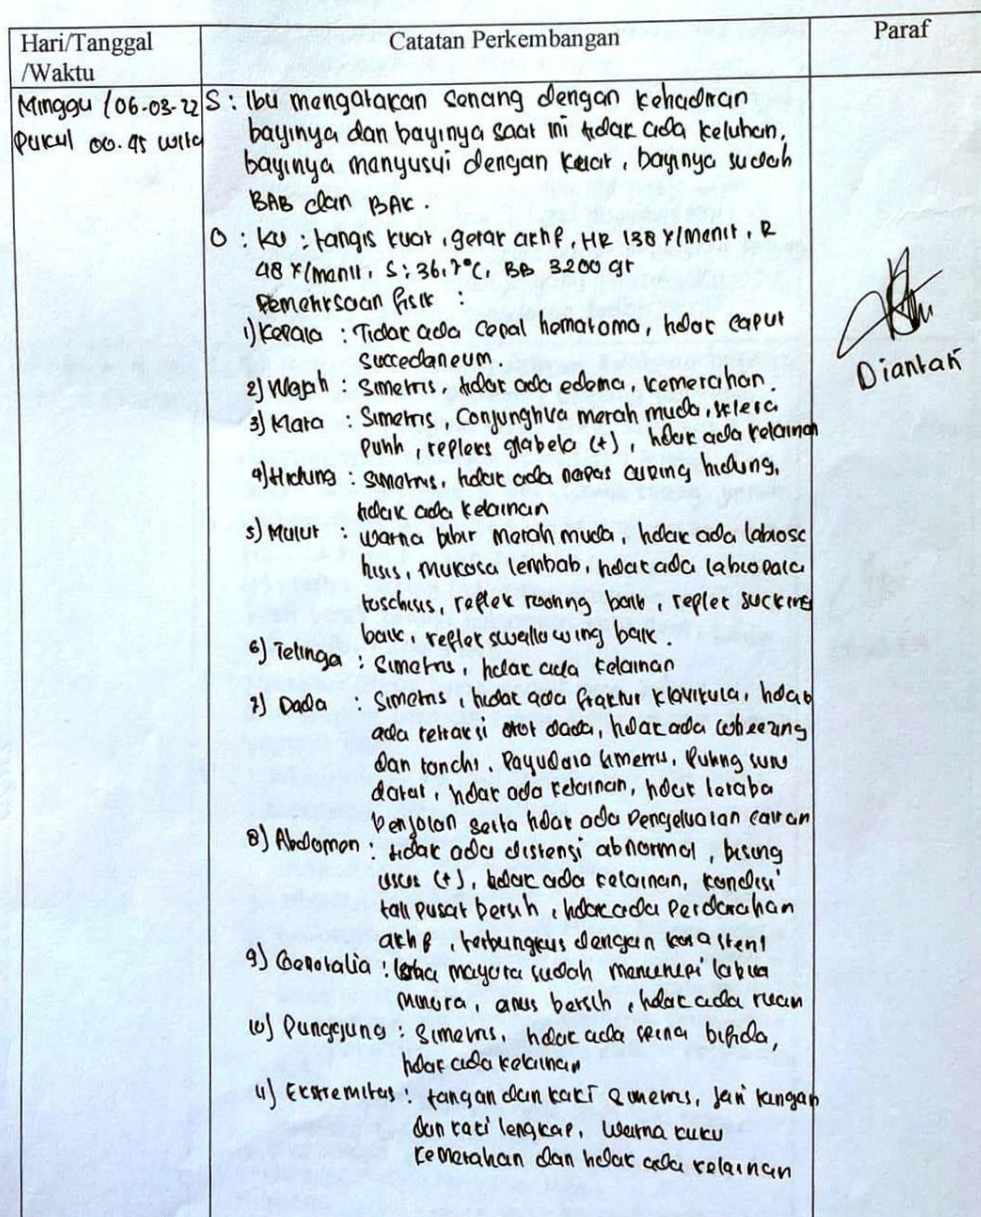 Hari/Tanggal
/Waktu
Catatan Perkembangan
Paraf
Minggu /06-03-22
Pukul 00.45 wita
S : Ibu mengatakan senang dengan kehadiran
bayinya dan bayinya saat ini tidak ada keluhan,
bayinya menyusui dengan kuat, bayinya sudah
BAB dan BAK.
O : KU : tangis kuat, gerak aktif, HR 138 x/menit, R
48 x/menit, S : 36,7°C, BB 3.200 gr
Pemeriksaan fisik :
1) Kepala : Tidak ada cepal hematoma, tidak caput
succedaneum.
2) Wajah : Simetris, tidak ada edema, kemerahan.
3) Mata : Simetris, Conjungtiva merah muda, sklera
putih, refleks glabela (+), tidak ada kelainan
4) Hidung : simetris, tidak ada napas cuping hidung,
tidak ada kelainan
5) Mulut : warna bibir merah muda, tidak ada labiosc
hisis, mukosa lembab, tidak ada labiopala
toschisis, reflek rooting baik, reflek sucking
baik, reflek swallowing baik.
6) Telinga : Simetris, tidak ada kelainan
7) Dada : Simetris, tidak ada fraktur klavikula, tidak
ada retraksi otot dada, tidak ada wheezing
dan ronchi, Payudara simetris, Puting susu
datar, tidak ada kelainan, tidak teraba
benjolan serta tidak ada pengeluaran cairan
8) Abdomen : tidak ada distensi abnormal, bising
usus (+), tidak ada kelainan, kondisi
tali pusat bersih, tidak ada Perdarahan
aktif, terbungkus dengan kasa steril
9) Genetalia : labia mayora sudah menutupi labia
minora, anus bersih, tidak ada ruam
10) Punggung : Simetris, tidak ada spina bifida,
tidak ada kelainan
11) Ekstremitas : tangan dan kaki simetris, jari tangan
dan kaki lengkap, warna kuku
kemerahan dan tidak ada kelainan
Diantari